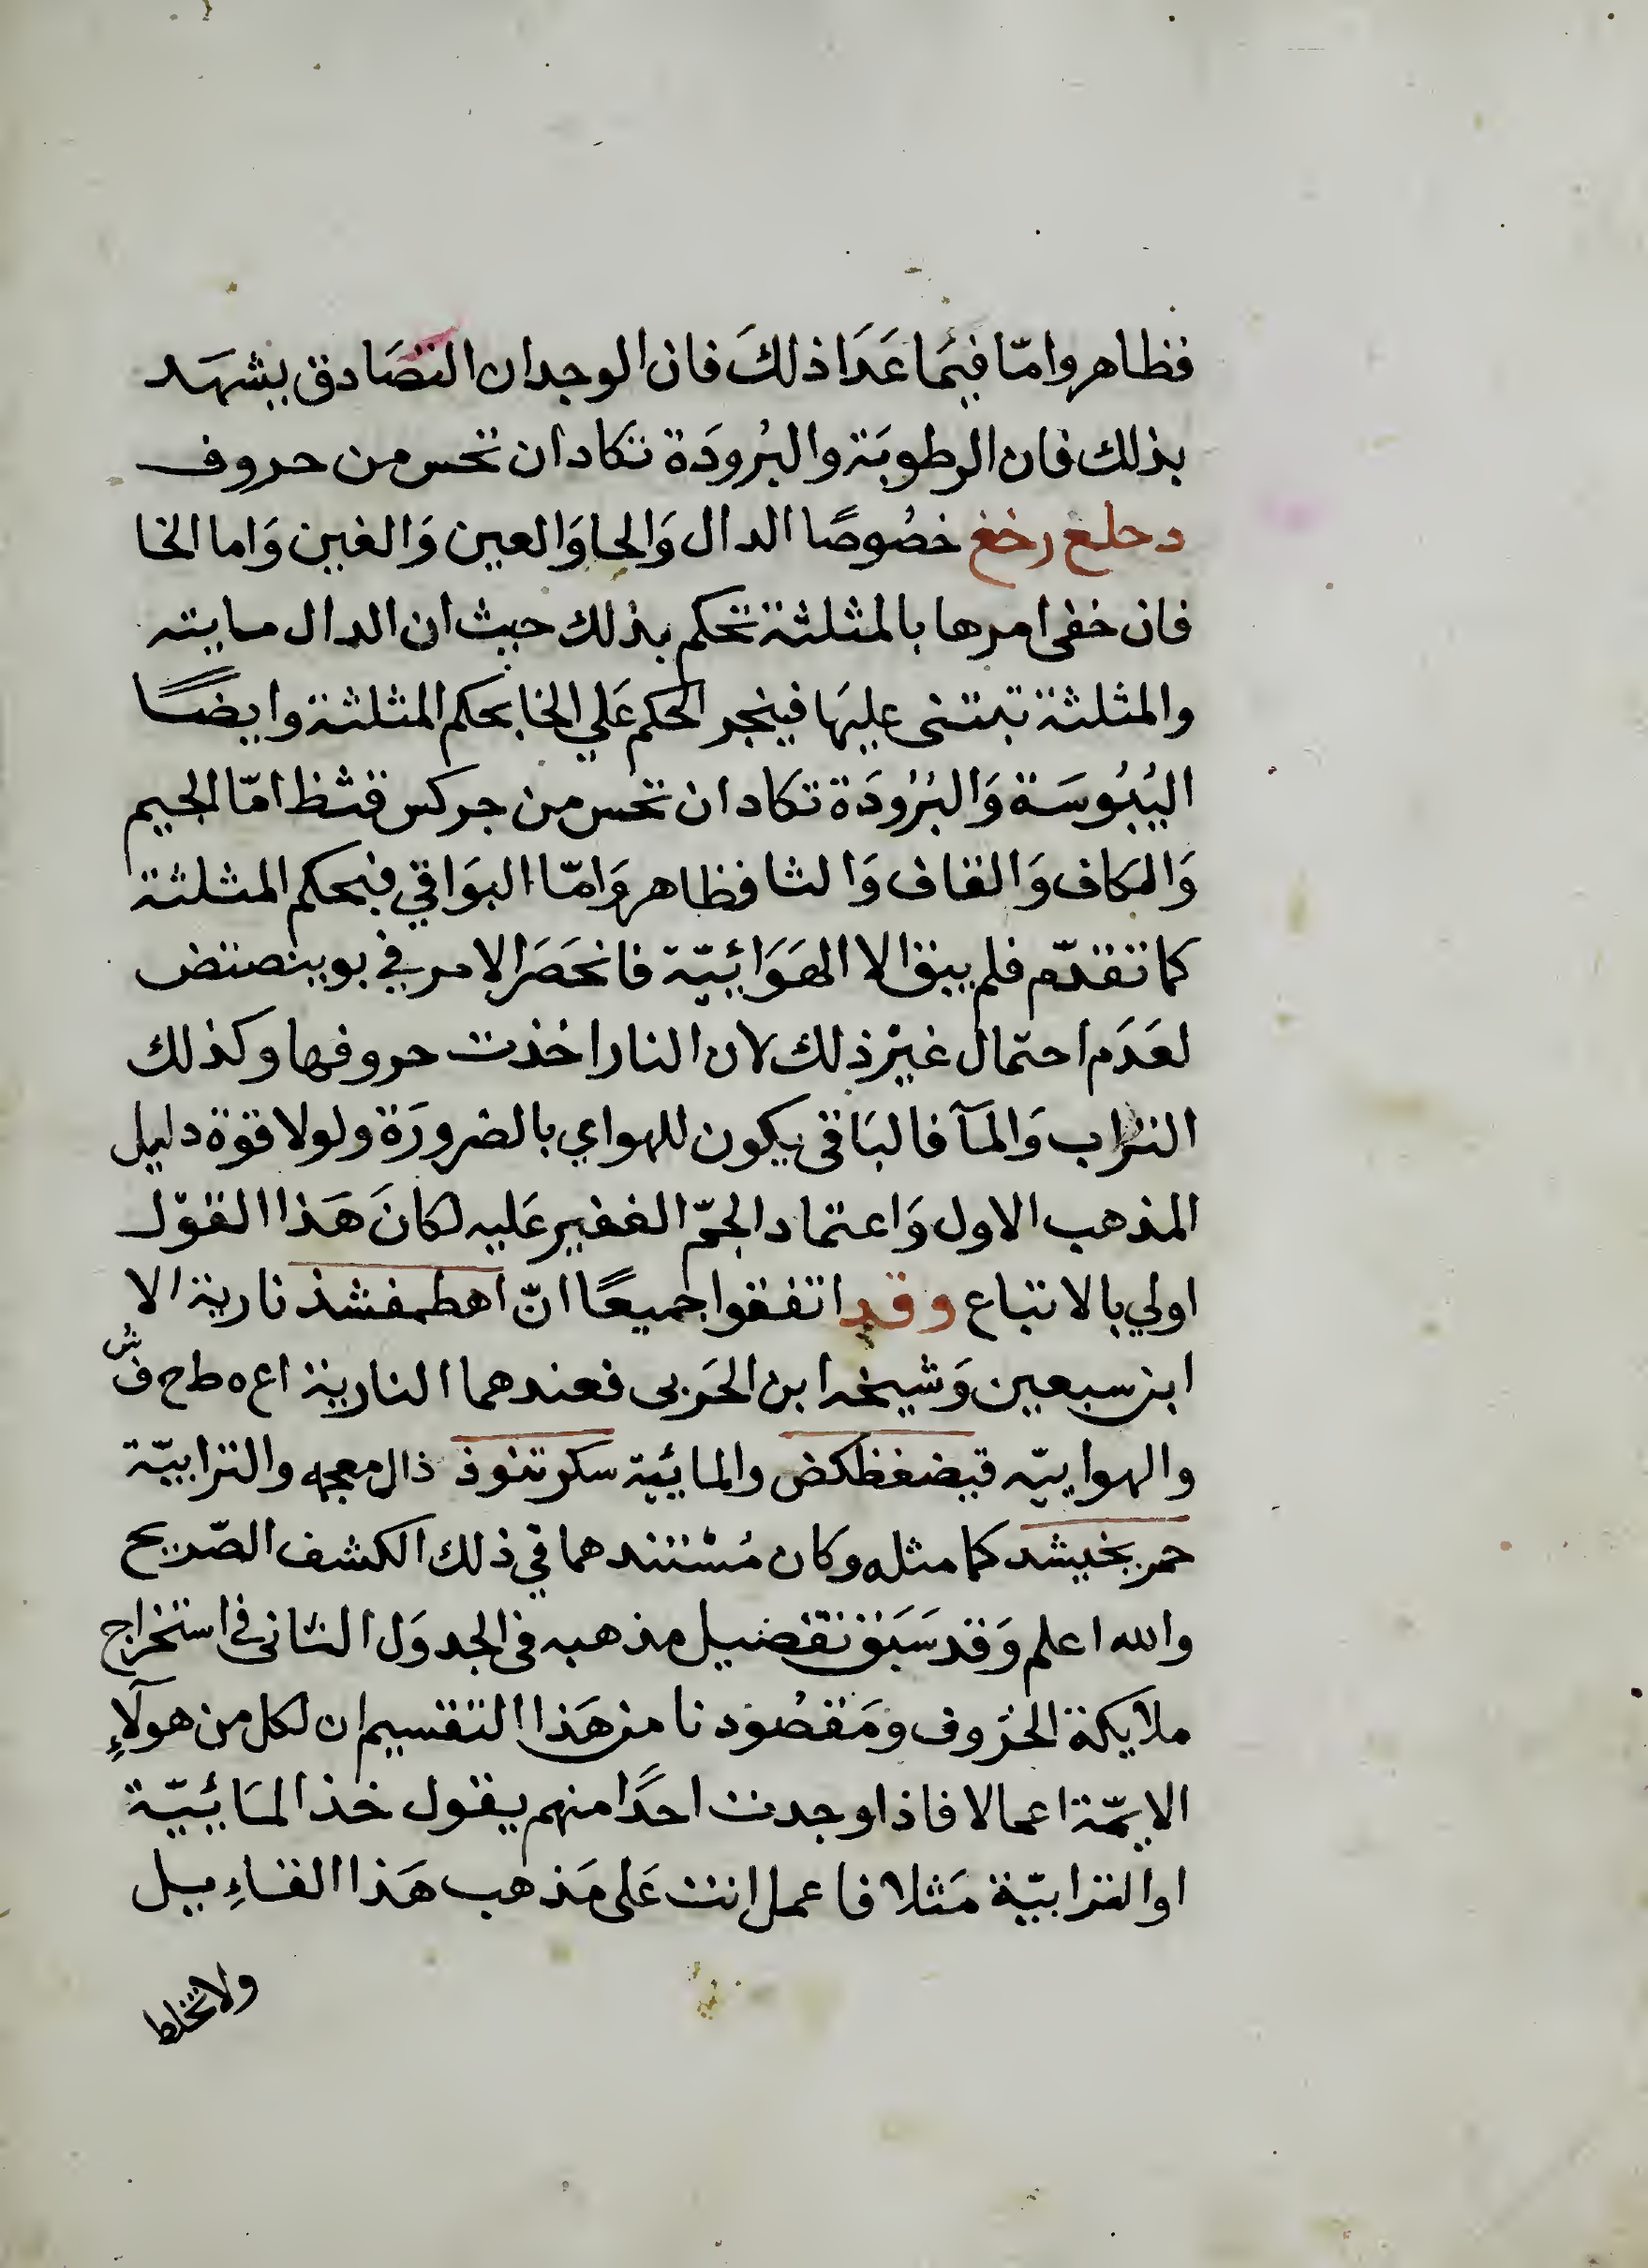 فظاهر وامّا فيمَا عَدَا ذلكَ فان الوجدان التصَادق يشهَد
بذلك فان الرطوبَة والبُرودَة تكاد ان تحس من حروف
دحلع رخغ خصُوصًا الدال وَالحا وَالعين وَالغين وَاما الخا
فان خفى امرها بالمثلثة تحكم بذلك حيث ان الدال مايته
والمثلثة تبتنى عليهَا فينجر الحكم عَلي الخا بحكم المثلثة وايضًا
اليُبُوسَة وَالبُرُودَة تكاد ان تحس من جركس قثظ امّا الجيم
وَالكاف وَالقاف وَالثا فظاهر وَامّا البوَاقي فبحكم المثلثة
كما تقدّم فلم يبق الا الهوَائيّة فانحَصَر الامر في بوينصتض
لعَدَم احتمال غيْر ذلك لان النار اخذت حروفها وكذلك
التراب وَالمآ فالبَاقى يكون للهواي بالضرورَة ولولا قوة دليل
المذهب الاول وَاعتماد الجمّ الغفير عَليه لكانَ هَذا القوْل
اولي بالاتباع وقد اتفقوا جميعًا انّ اهطمفشذ نارية الا
ابن سبعين وَشيخه ابن الحَربى فعندهما النارية اع ه ط ح ف ش
والهواييّه قيضغظكض والمائية سكرتثوذ ذال معجمه والترابيّة
حمر بخيشد كما مثله وكان مُسْتندهما في ذلك الكشف الصّريح
والله اعلم وَقد سَبَق تفضيل مذهبه فى الجدوَل الثانى في استخراج
ملايكة الحُروف ومَقصُودنا من هَذا التقسيم ان لكل من هولآءِ
الايمّة اعمالا فاذا وجدت احدًا منهم يقول خذ المَائيّة
او الترابيّة مَثلا فاعمل انت عَلى مَذهب هَذا القاءِيل
ولا تخلط